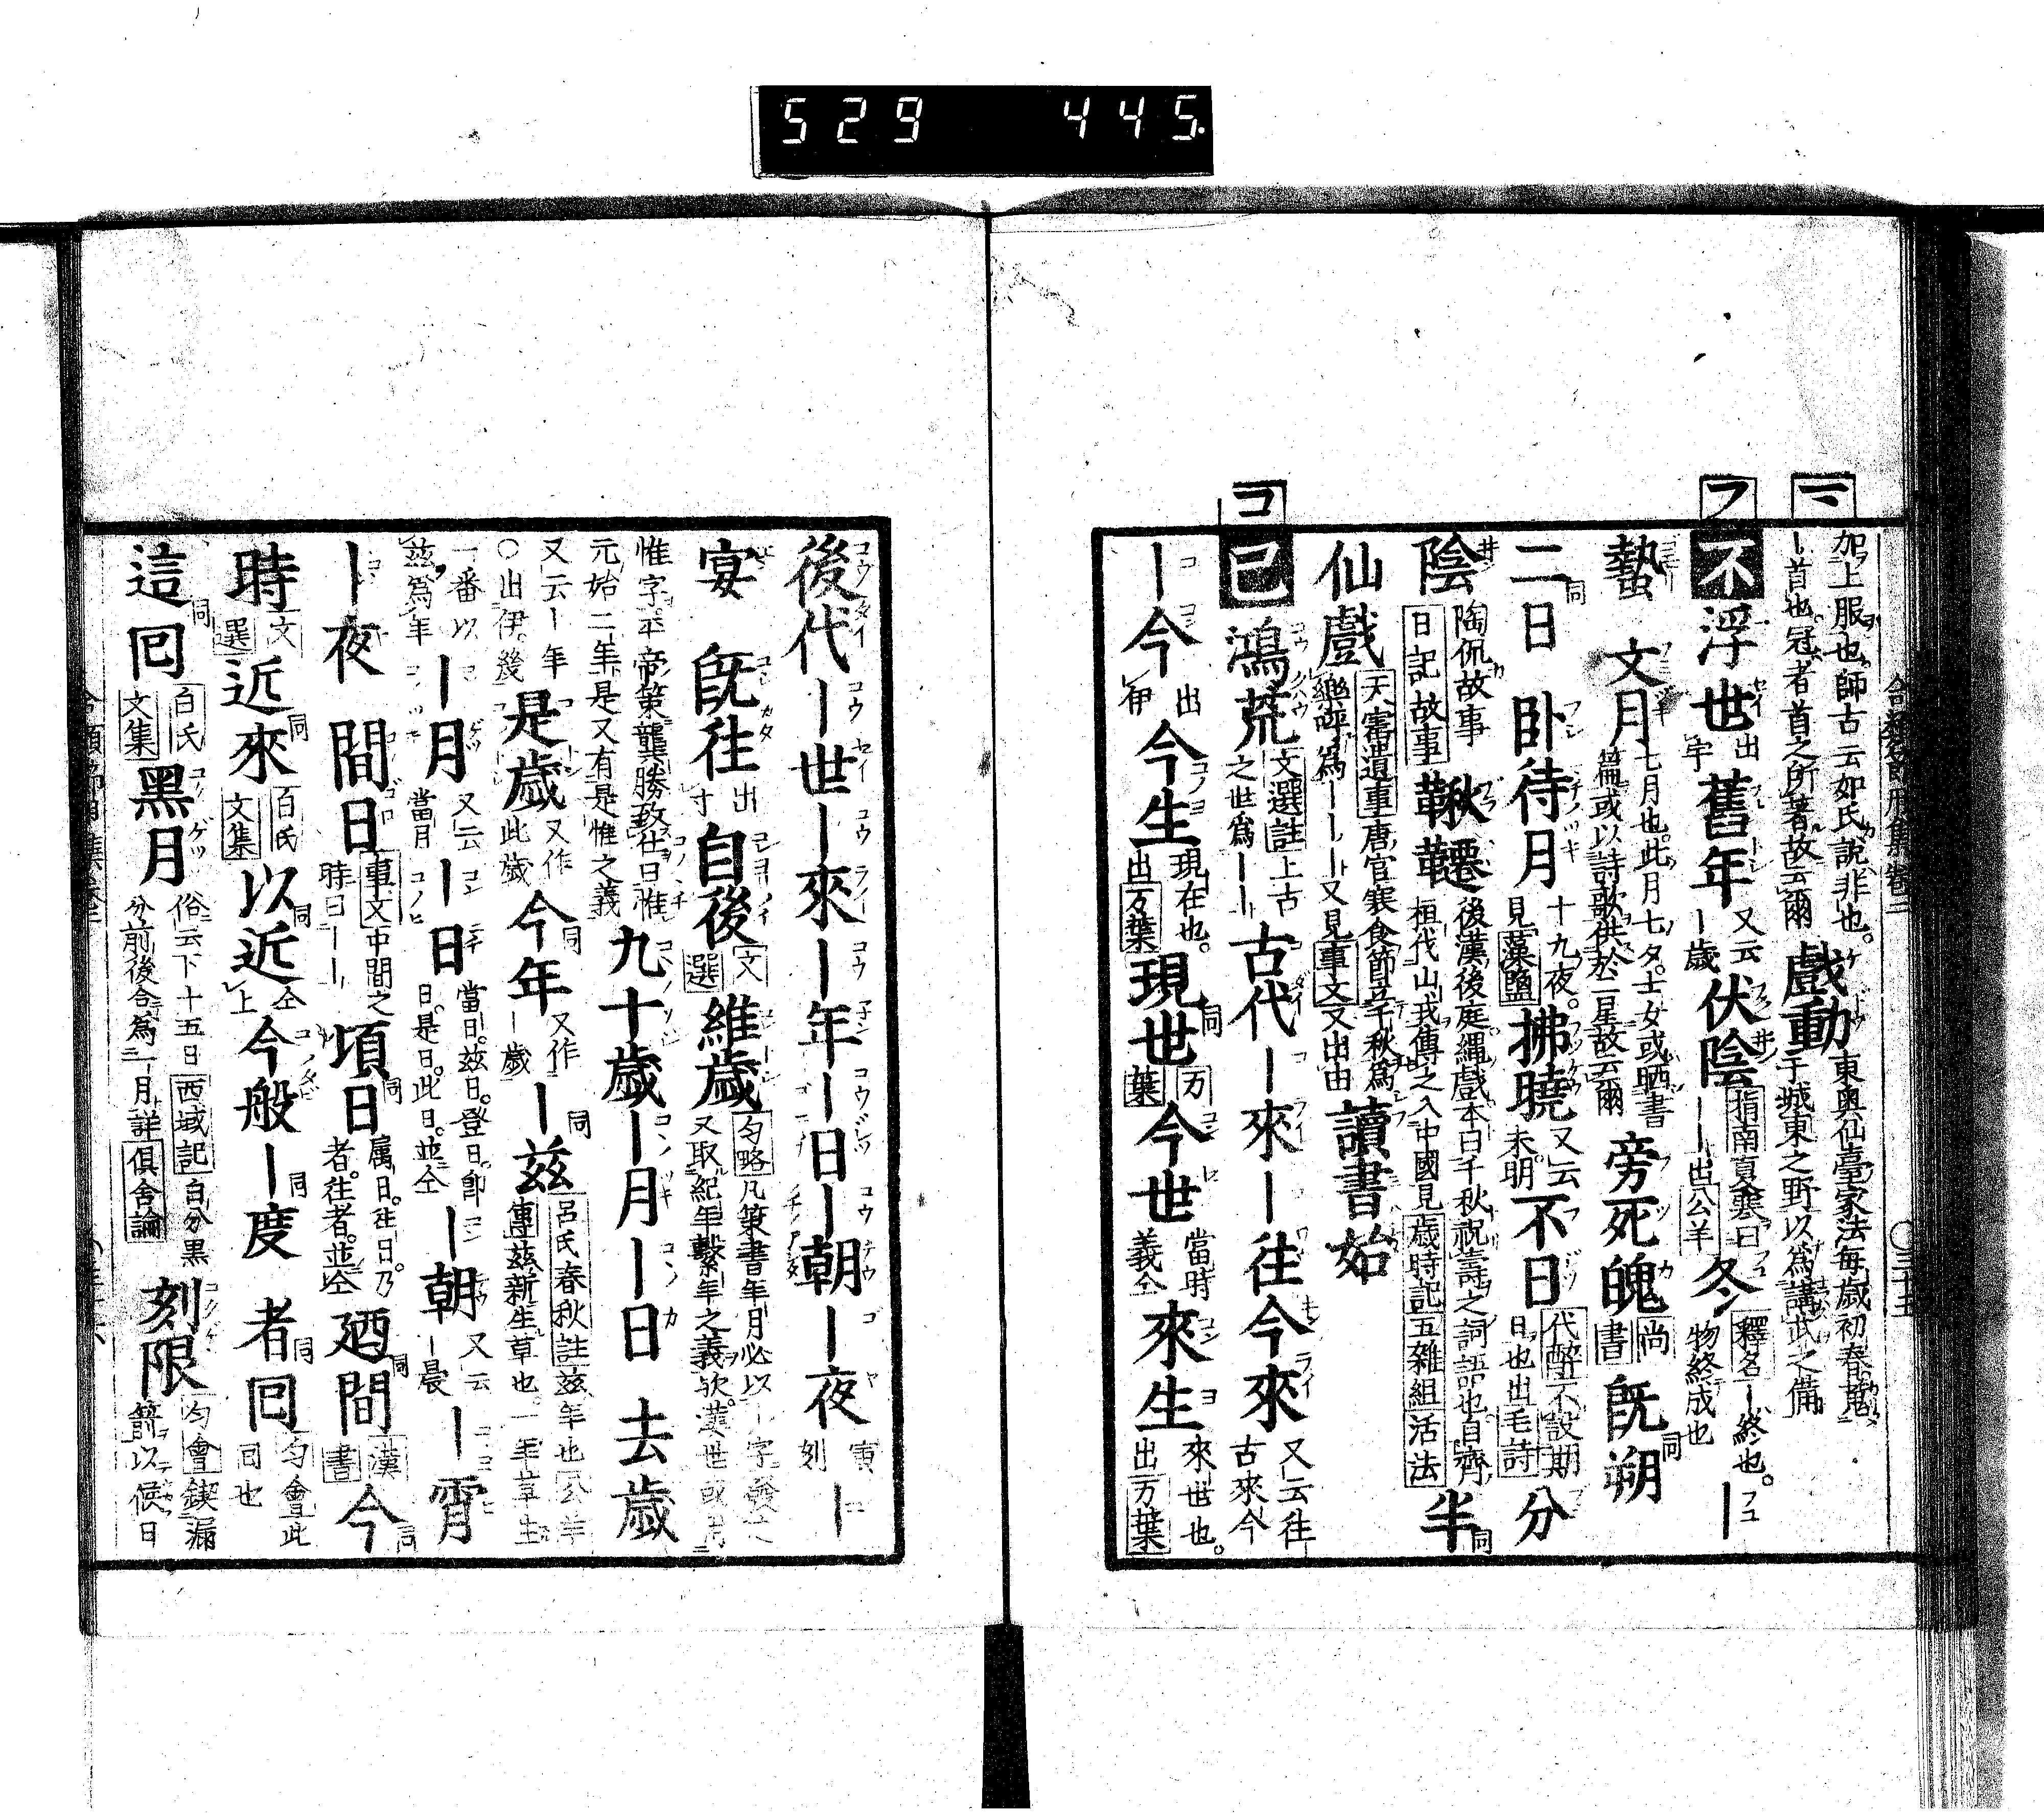 529 445
合類節用集卷二 〇三十五
ケ
加上服也師古云如氏說非也。
ー首也冠者首之所著故云爾
戲動
東奥仙臺家法每歲初春
于城東之野以爲講武之備
フ
不 浮世 出宇 舊年 又云ー歲 伏陰 指南夏襄曰ーー也公羊 冬 釋名ー終也。物終成也 ー
蟄 文月 七月也。此月七夕。士女或晒書篇或以詩歌供於二星故云爾 旁死魄 尚書 既朔 同
二日 同 卧待月 十九夜。見藻鹽 拂曉 又云未明。 不日 代醉不設期日也出毛詩 分
陰 陶侃故事日記故事 鞦韆 後漢後庭縄戲本曰千秋祝壽之詞語也自齊桓伐山戎傳之入中國見歲時記五雜組活法 半 同
仙戲 天寶遺事唐官寒食節立千秋爲樂呼爲ーーー又見事文文出由 讀書始
コ
己 鴻荒 文選註上古之世爲ーー 古代 ー來 ー往 今來 又云往古來今
ー今 出伊 今生 現在也。出万葉 現世 同 万葉 今世 當時義仝 來生 來世也。出万葉
後代 ー世 ー來 ー年 ー日 ー朝 ー夜 寅刻 ー
宴 既往 出寸 自後 文選 維歲 匀略凡策書年月必以ー字發之又取紀年繫年之義欤。漢世或
惟字。平帝策龔勝致仕曰惟元始二年是又有是惟之義 九十歲 ー月 ー日 去歲
又云ー年〇出伊。幾 是歲 又作此歲 今年 同 又作ー歲 ー兹 同 呂氏春秋註兹年也公羊傳兹新生草也。一年草生
一番以兹爲年 ー月 又云當月 ー日 當日。兹日。登日。即日。是日。此日。並仝 ー朝 又云ー晨 ー霄
ー夜 間日 事文中間之時曰ーー 頃日 同 属日。往日。乃者。往者。並仝 廼間 同 漢書 今 同
時 文選 近來 同 白氏文集 以近 同 仝上 今般 ー度 同 者回 同 匀會此回也
這回 同 白氏文集 黑月 俗云下十五日西域記白分黑分前後合爲一月詳俱舍論 刻限 匀會鍥漏箭以候日